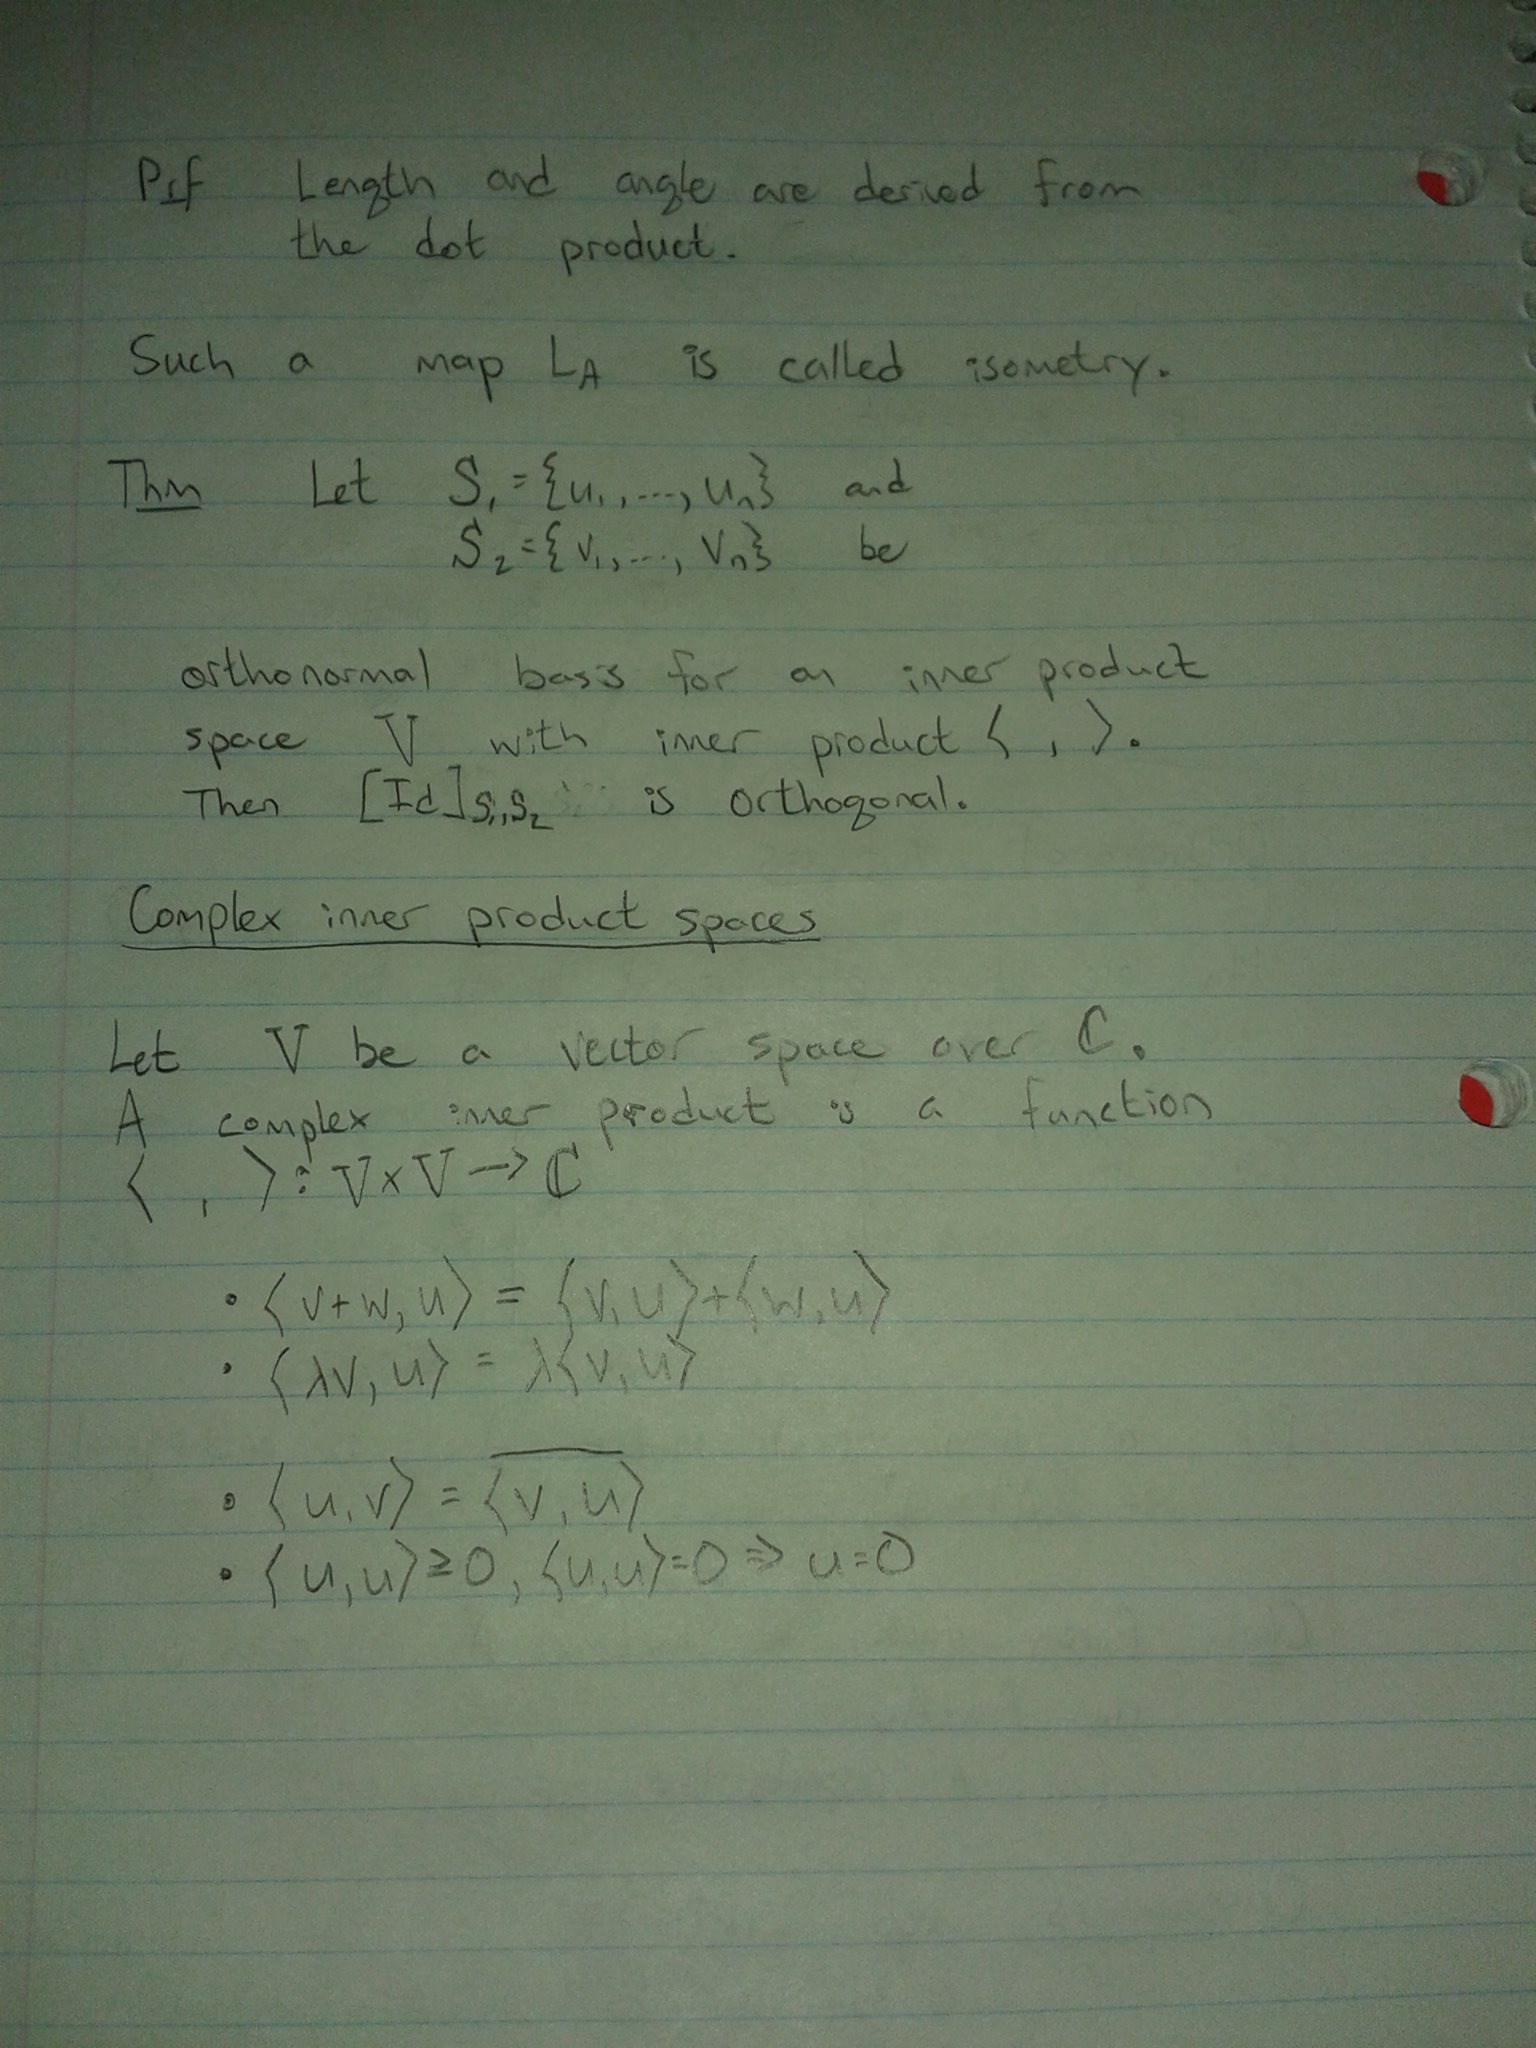 Prf Length and angle are derived from
the dot product.
Such a map L_A is called isometry.
Thm Let S₁={u₁,...,uₙ} and
S₂={v₁,...,vₙ} be
orthonormal basis for an inner product
space V with inner product ⟨ , ⟩.
Then [Id]S₁,S₂ is orthogonal.
Complex inner product spaces
Let V be a vector space over ℂ.
A complex inner product is a function
⟨ , ⟩: V×V→ℂ
• ⟨v+w,u⟩ = ⟨v,u⟩+⟨w,u⟩
• ⟨λv,u⟩ = λ⟨v,u⟩
• ⟨u,v⟩ = \overline{⟨v,u⟩}
• ⟨u,u⟩≥0, ⟨u,u⟩=0⇒u=0